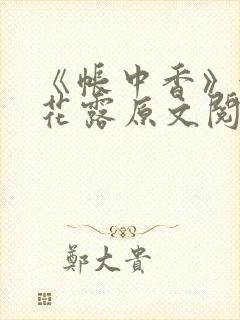 《帐中香》
花露原文阅
鄭大貴